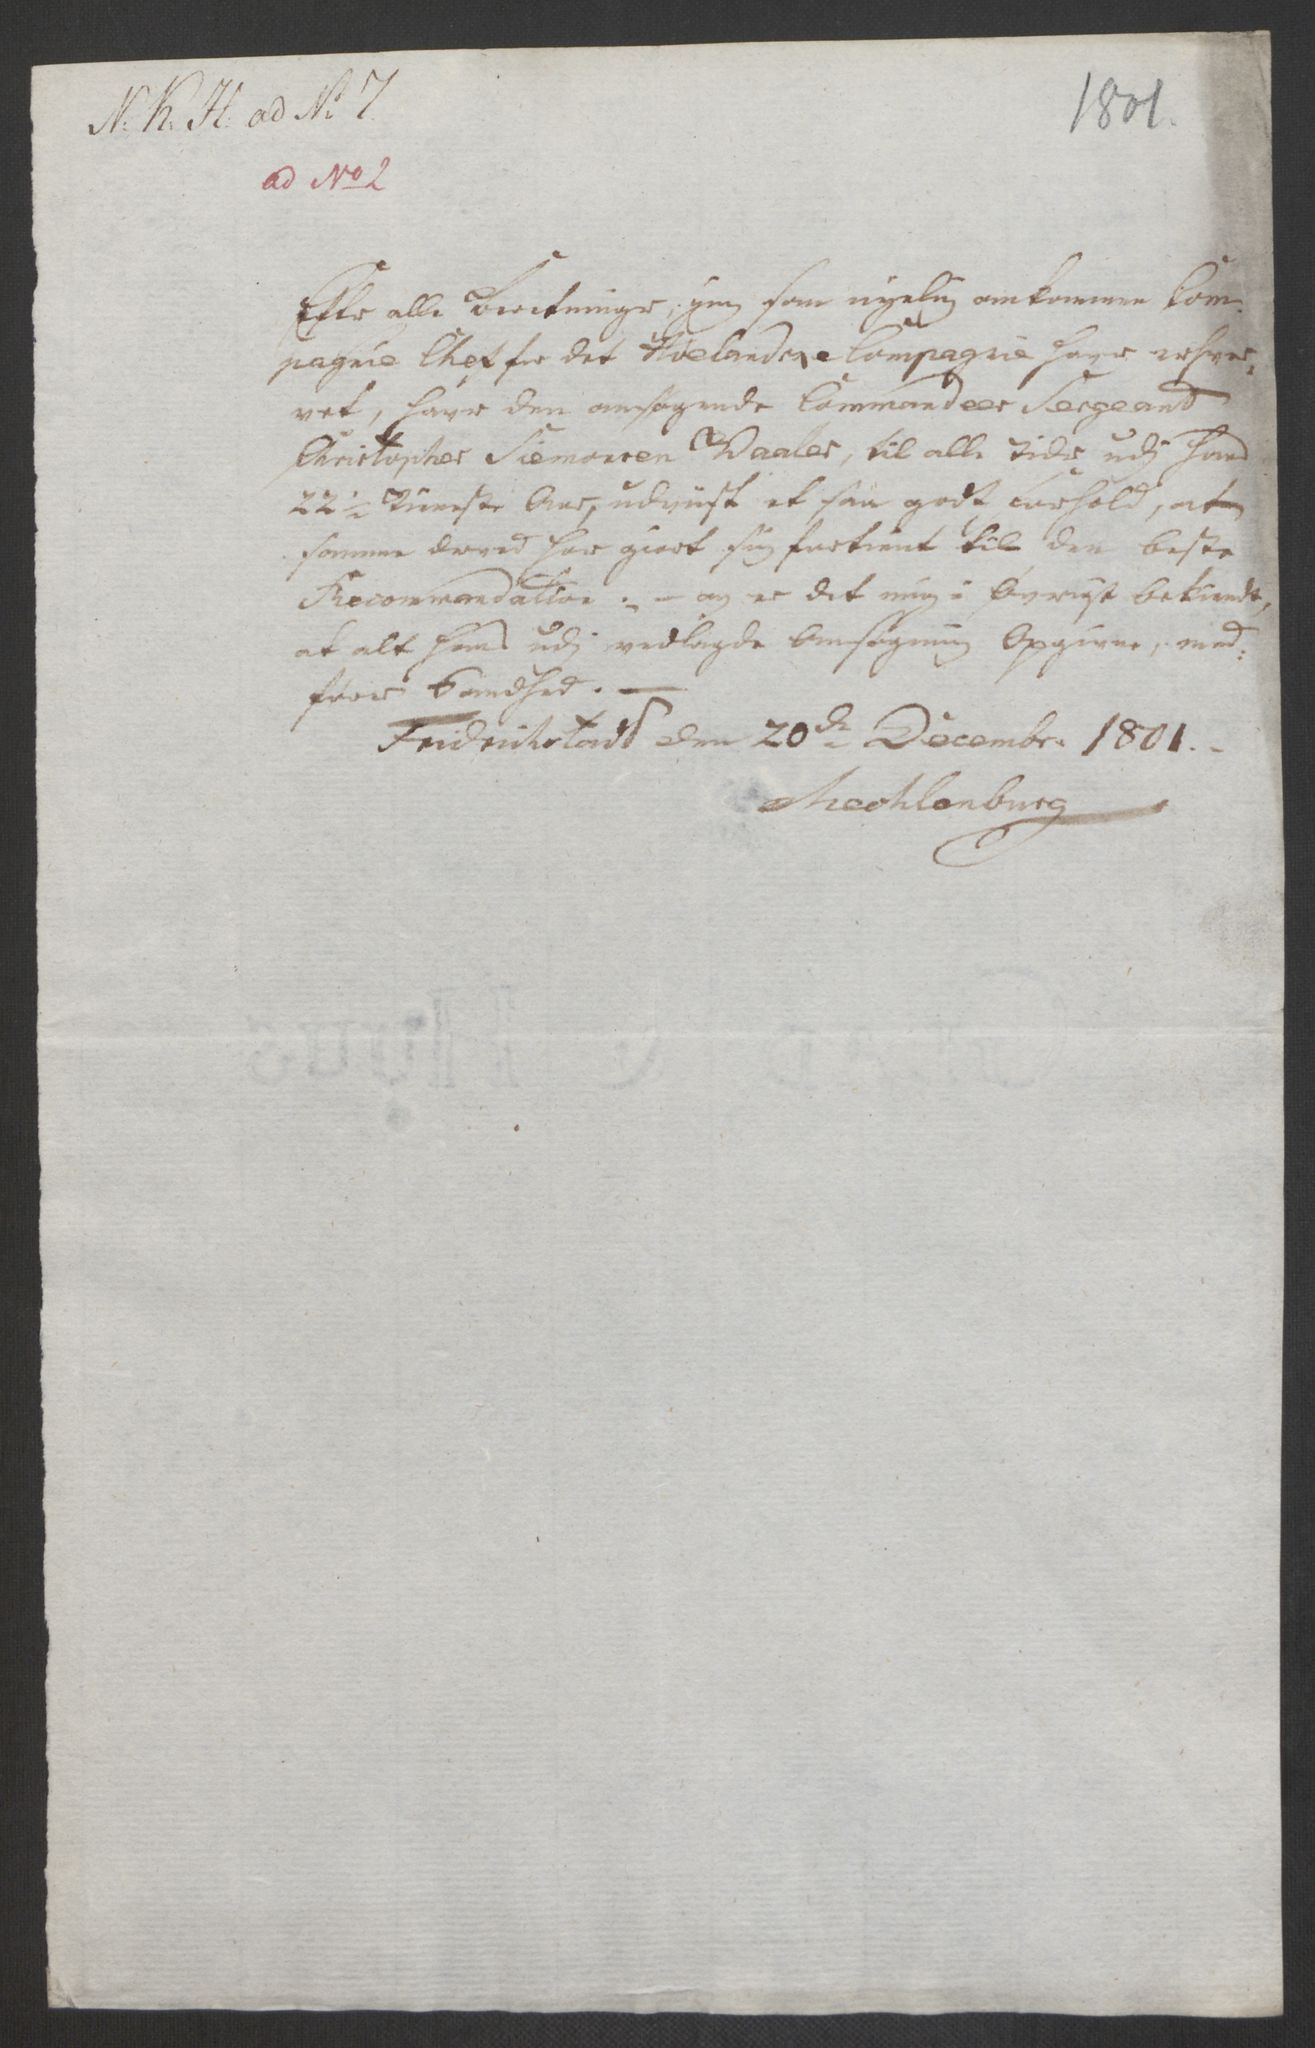 N. K. H. ad No 7.
1801.
ad No 2
Efter alle Beretninger, jeg som nyelig ankommen Com-
pagnie Chef for det Hvelandske Compagnie haver erhver-
vet, haver den ansøgende Commandeer Sergeant
Christopher Siemonsen Waaler, til alle Tider udj hans
22½ Tieneste Aar, udviist et saa godt Forhold, at
samme derved har giort sig fortient til den beste
Recommendation. - og er det mig i Øvrigt bekiendt,
at alt hans udj vedlagde Ansøgning Opgivne, med-
fører Sandhed. —
Fridrichstad den 20de Decembr. 1801.
Mechlenburg